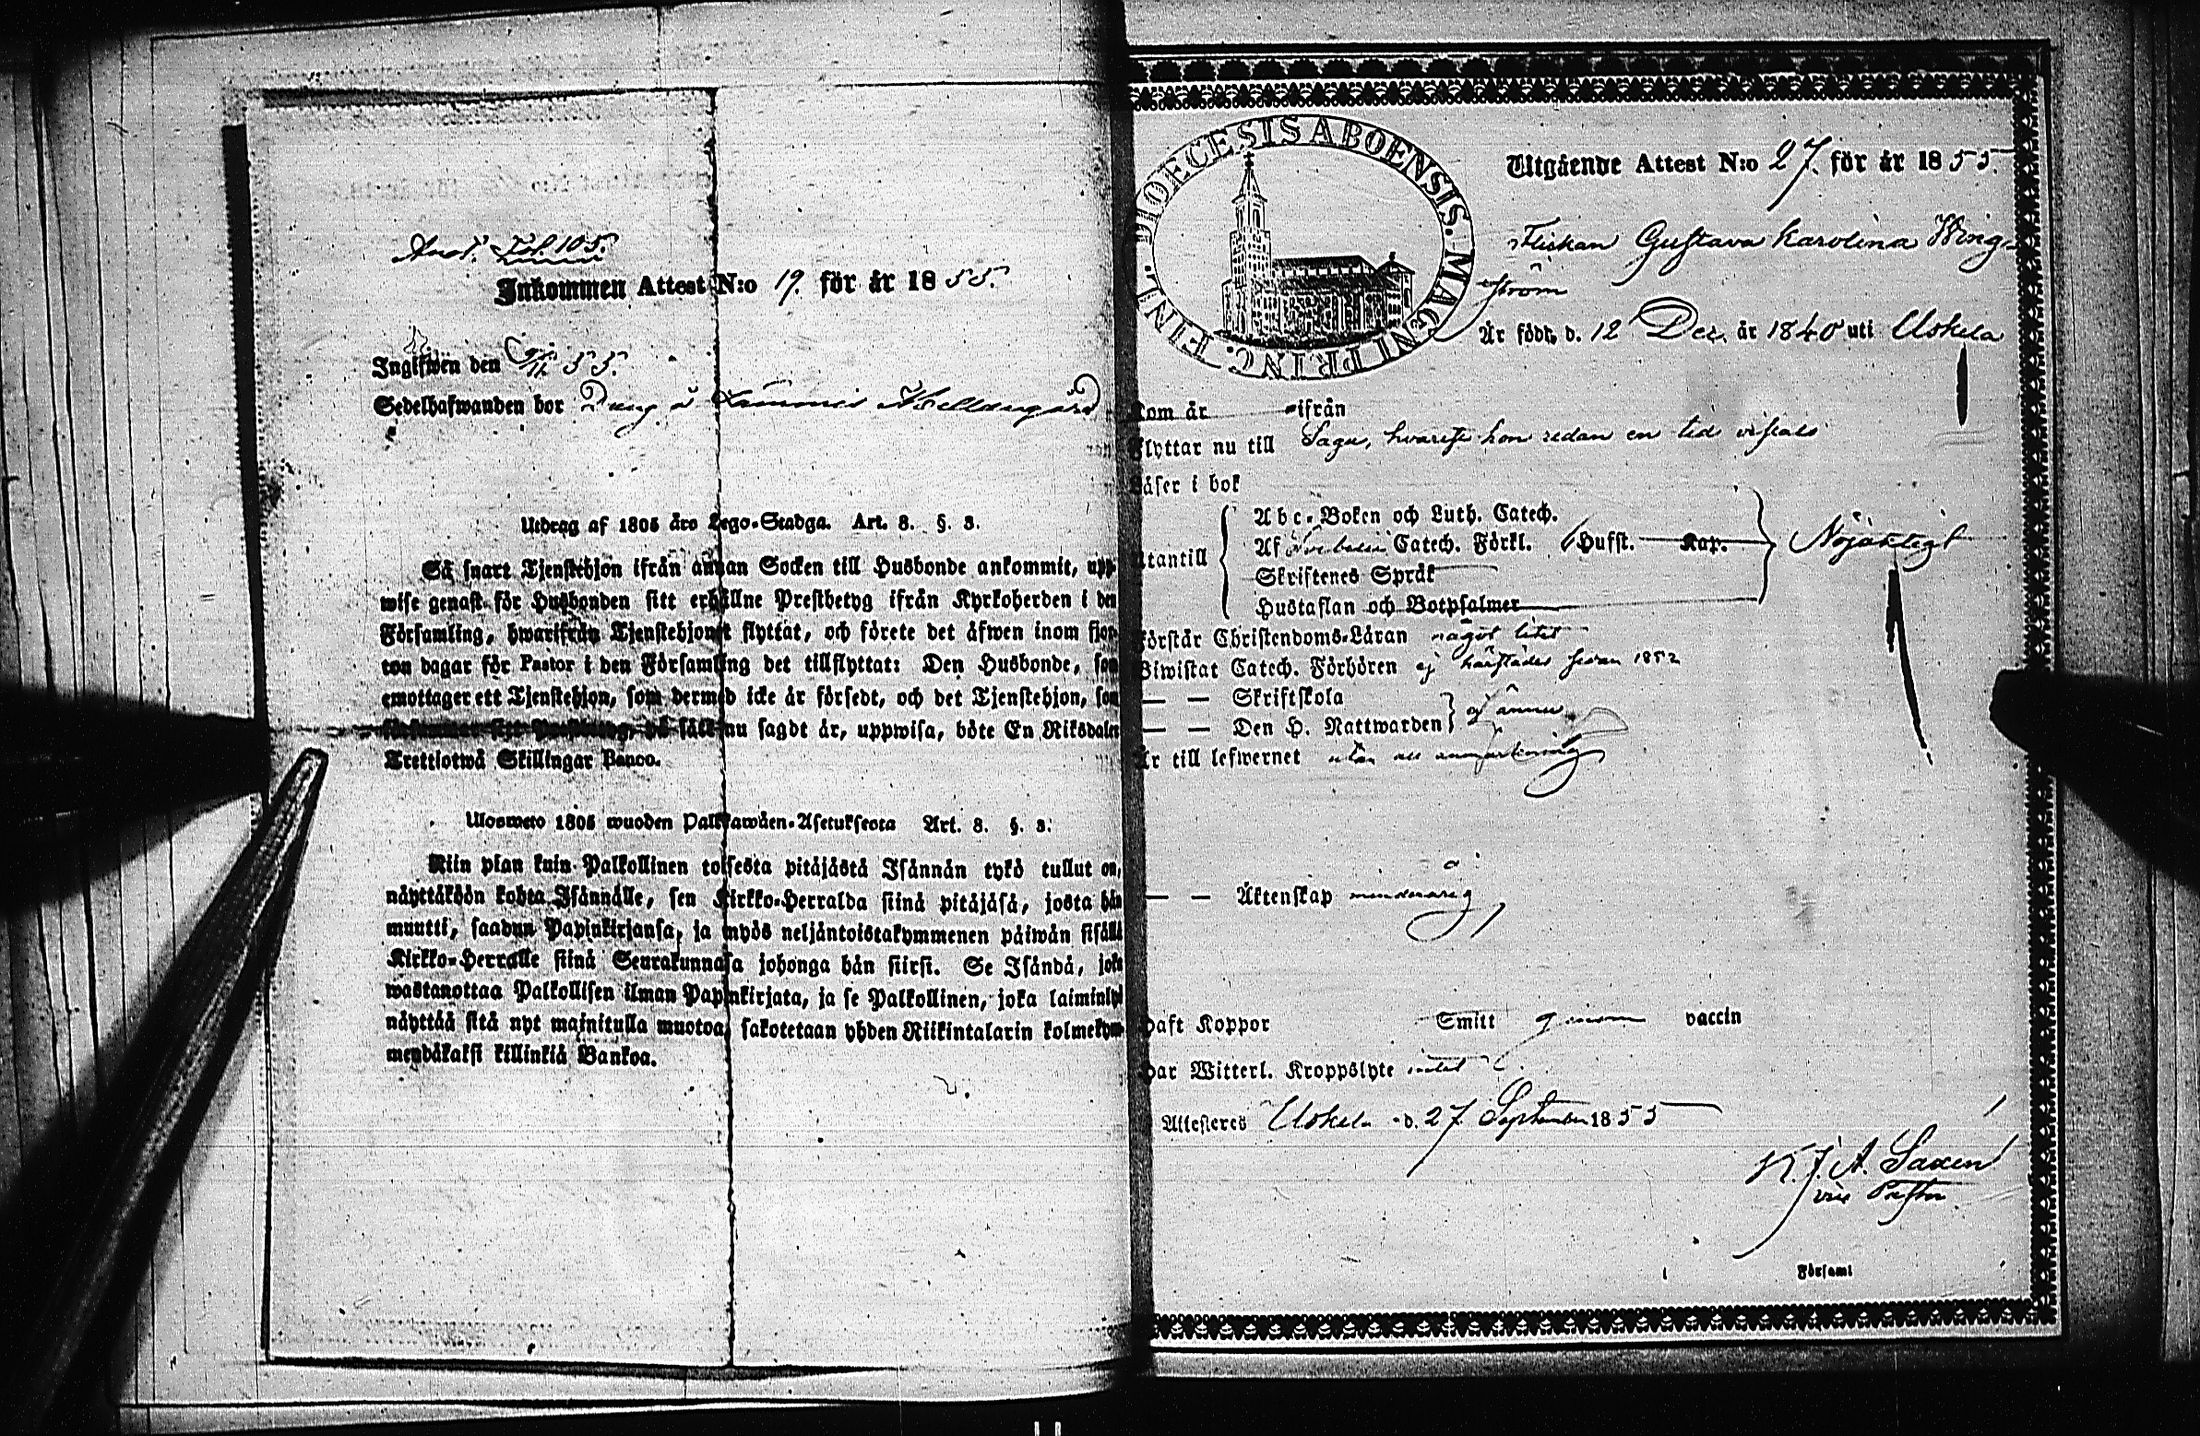 Anot. Fol. 105.
Inkommen Attest N:o 19. för år 1855.
Ingifwen den 9/11 55.
Sedelhafwanden bor Dräng å Lammis
Utdrag af 1805 års Lego-Stadga. Art. 8. §. 3.
Så snart Tjenstehjon ifrån annan Socken till Husbonde ankommit, upp-
wise genast för Husbonden sitt erhållne Prestbetyg ifrån Kyrkoherden i den
Församling, hwarifrån Tjenstehjonet flyttat, och förete det äfwen inom fjor-
ton dagar för Pastor i den Församling det tillflyttat: Den Husbonde, som
emottager ett Tjenstehjon, som dermed icke är försedt, och det Tjenstehjon, som
sätt nu sagdt är, uppwisa, böte En Riksdaler
Trettiotwå Skillingar Banco.
Ulosweto 1805 wuoden Palkkawäen-Asetuksesta Art. 8. §. 3.
Niin pian kuin Palkollinen toisesta pitäjästä Isännän tykö tullut on,
näyttäköön kohta Isännälle, sen Kirkko-Herralda siinä pitäjäsä, josta hän
muutti, saadun Papinkirjansa, ja myös neljäntoistakymmenen päiwän sisällä
Kirkko-Herralle siinä Seurakunnasa johonga hän siirsi. Se Isändä, joka
wastanottaa Palkollisen ilman Papinkirjata, ja se Palkollinen, joka laiminlyö
näyttää sitä nyt mainitulla muotoa, sakotetaan yhden Riikintalarin kolmekym-
mendäkaksi killinkiä Bankoa.
DIOECESIS ABOENSIS. MAGNI PRINC. FINL.
Utgående Attest N:o 27. för år 1855.
Flickan Gustava Karolina Wing-
ström
Är född d. 12 Dec. år 1840 uti Uskela
Kom år ifrån
Flyttar nu till Sagu, hwarest hon redan en tid vistats
Läser i bok
Utantill
Abc-Boken och Luth. Catech.
Af Catech. Förkl. 6 Hufst. Kap.
Skriftenes Språk
Hustaflan och Botpsalmer
Nöjaktigt
Förstår Christendoms-Läran något litet
Biwistat Catech. Förhören ej härstädes sedan 1852
— — Skriftskola
— — Den H. Nattwarden
ej ännu
Är till lefwernet utan all anmärkning
— — Äktenskap minderårig
Haft Koppor Smitt genom vaccin
Har Witterl. Kroppslyte intet
Attesteres Uskela d. 27 September 1855
K. J. A. Saxen
vice Pastor
Församl